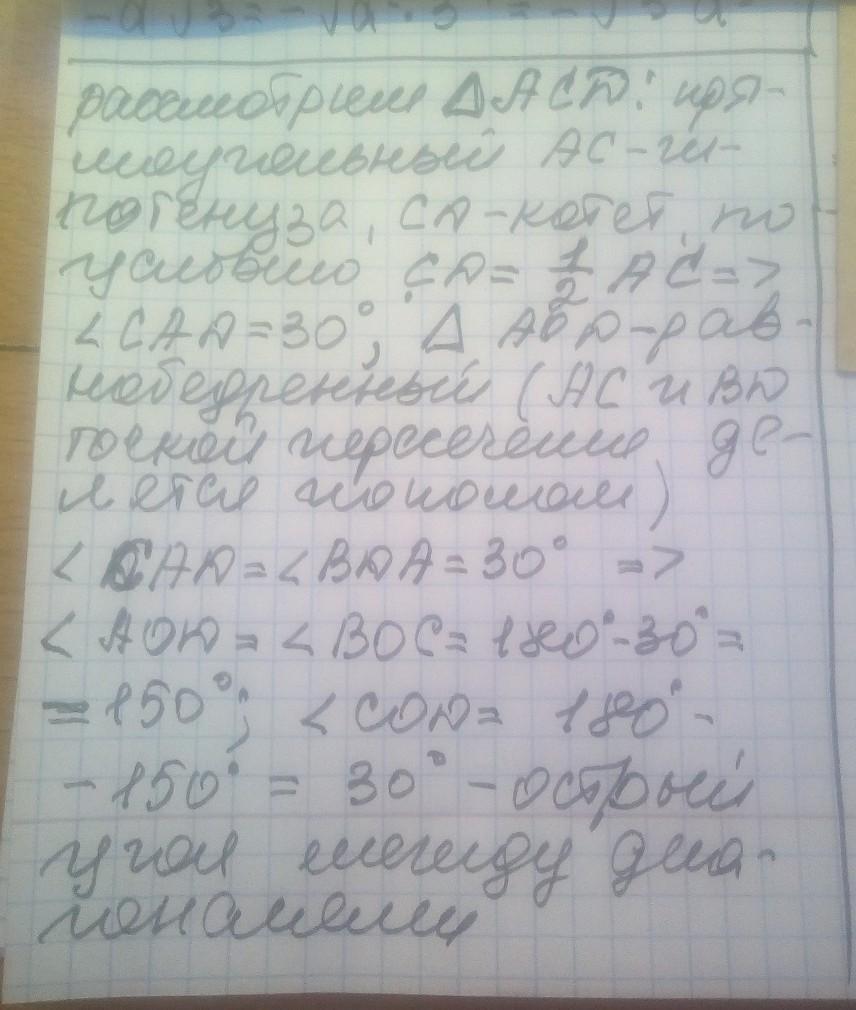 -a√3 = -√a·3 = -√3 a
рассмотрим ΔACD: пря-
моугольный AC-ги-
потенуза, CD-катет, по
условию CD = 1/2 AC =>
<CAD=30°; Δ AOD-рав-
нобедренный (AC и BD
точкой пересечения де-
лятся пополам)
<CAD=<BDA=30° =>
<AOD=<BOC=180°-30°=
=150°; <COD= 180°-
-150° = 30° -острый
угол между диа-
гоналями